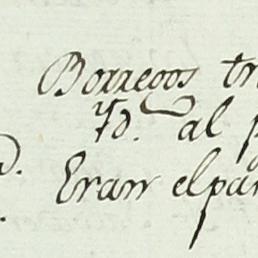 Borregos tr
Yd. al p
d. Eran elpar